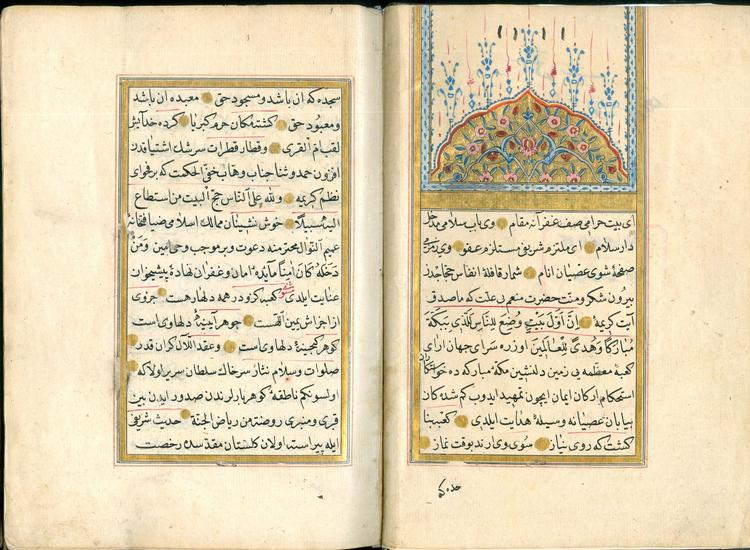 ای بیت حرامی صف غفرانه مقام وی باب سلامی مدخل
دار سلام ای ملتزم شریفی مستلزم عفو وی زمزمی
صفحهٔ شوی عصیان انام شمار قافلهٔ انفاس حجاجدن
بیرون شکر و منت حضرت منعم بی علت که ما صدق
آیت کریمهٔ اِنَّ اَوَّلَ بَیْتٍ وُضِعَ لِلنّاسِ لَلَّذی بِبَکَّةَ
مُبارَکًا وَهُدًی لِلْعالَمینَ اوزره سرای جهان آرای
کعبهٔ معظمه یی زمین دلنشین مکهٔ مبارکه ده
استحکام ارکان ایمان ایچون تمهید ایدوب کم شدکان
بیابان عصیانه وسیلهٔ هدایت ایلدی کعبه بنا
کشت که روی نیاز سوی وی آرند بوقت نماز
سجده که آن باشد و مسجود حق معبده آن باشد
و معبود حق کشته مکان حرم کبریا کرده خدا
لقبام القری و قطار قطرات سرشک اشتیاقدن
افزون حمد و ثنا جناب وهاب خفی الحکمت که بر فحوای
نظم کریمه ولله علی الناس حج البیت من استطاع
الیه سبیلا خوش نشینان ممالک اسلامی ضیافتخانهٔ
عمیم النوال محترمنه دعوت و بر موجب وحی امین وَمَنْ
دَخَلَهُ کانَ آمِنًا مایدهٔ امان و غفران نهادهٔ پیشخوان
عنایت ایلدی کعبه کزو در همه دلها رهست جزوی
از اجزاش یمین اللهست جوهر آیینهٔ دلها وی است
کوهر کنجینهٔ دلها وی است و عقد اللآل کران قدر
صلوات و سلام نثار سر خاک سلطان سریر لولاکه
اولسونکم ناطقهٔ کوهر بارلرندن صدور ایدن بین
قبری و منبری روضة من ریاض الجنة حدیث شریفی
ایله پیراسته اولان کلستان مقدسده رخصت